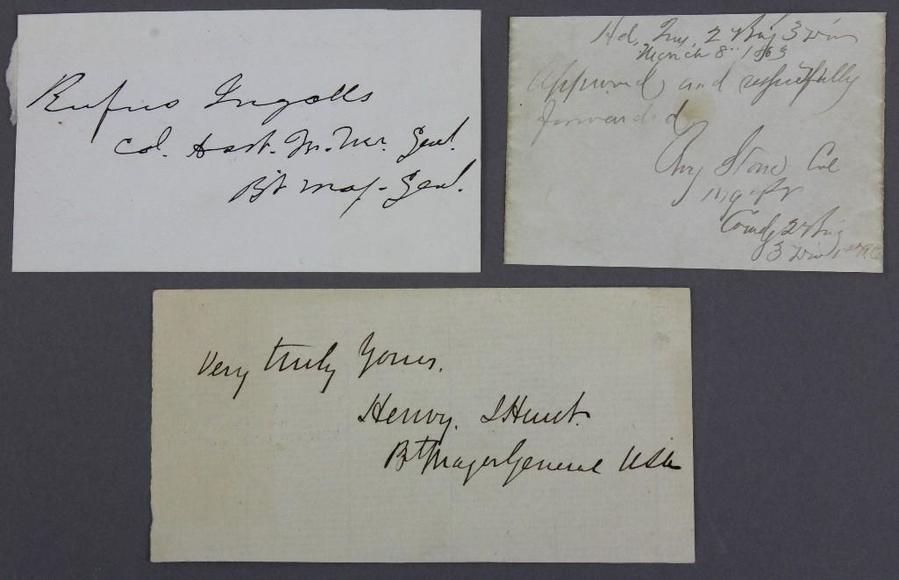 Rufus Ingalls
Col. Asst. Qr. Mr. Genl.
Bt Maj-Genl.
Hd, Qrs, 2 Brig 3 Div
March 8" 1863
Approved and respectfully
forwarded
Roy Stone Col
Comdg 2 Brig
3 Div 1st A.C.
Very truly Yours,
Henry, J Hunt.
Bt Major General USA